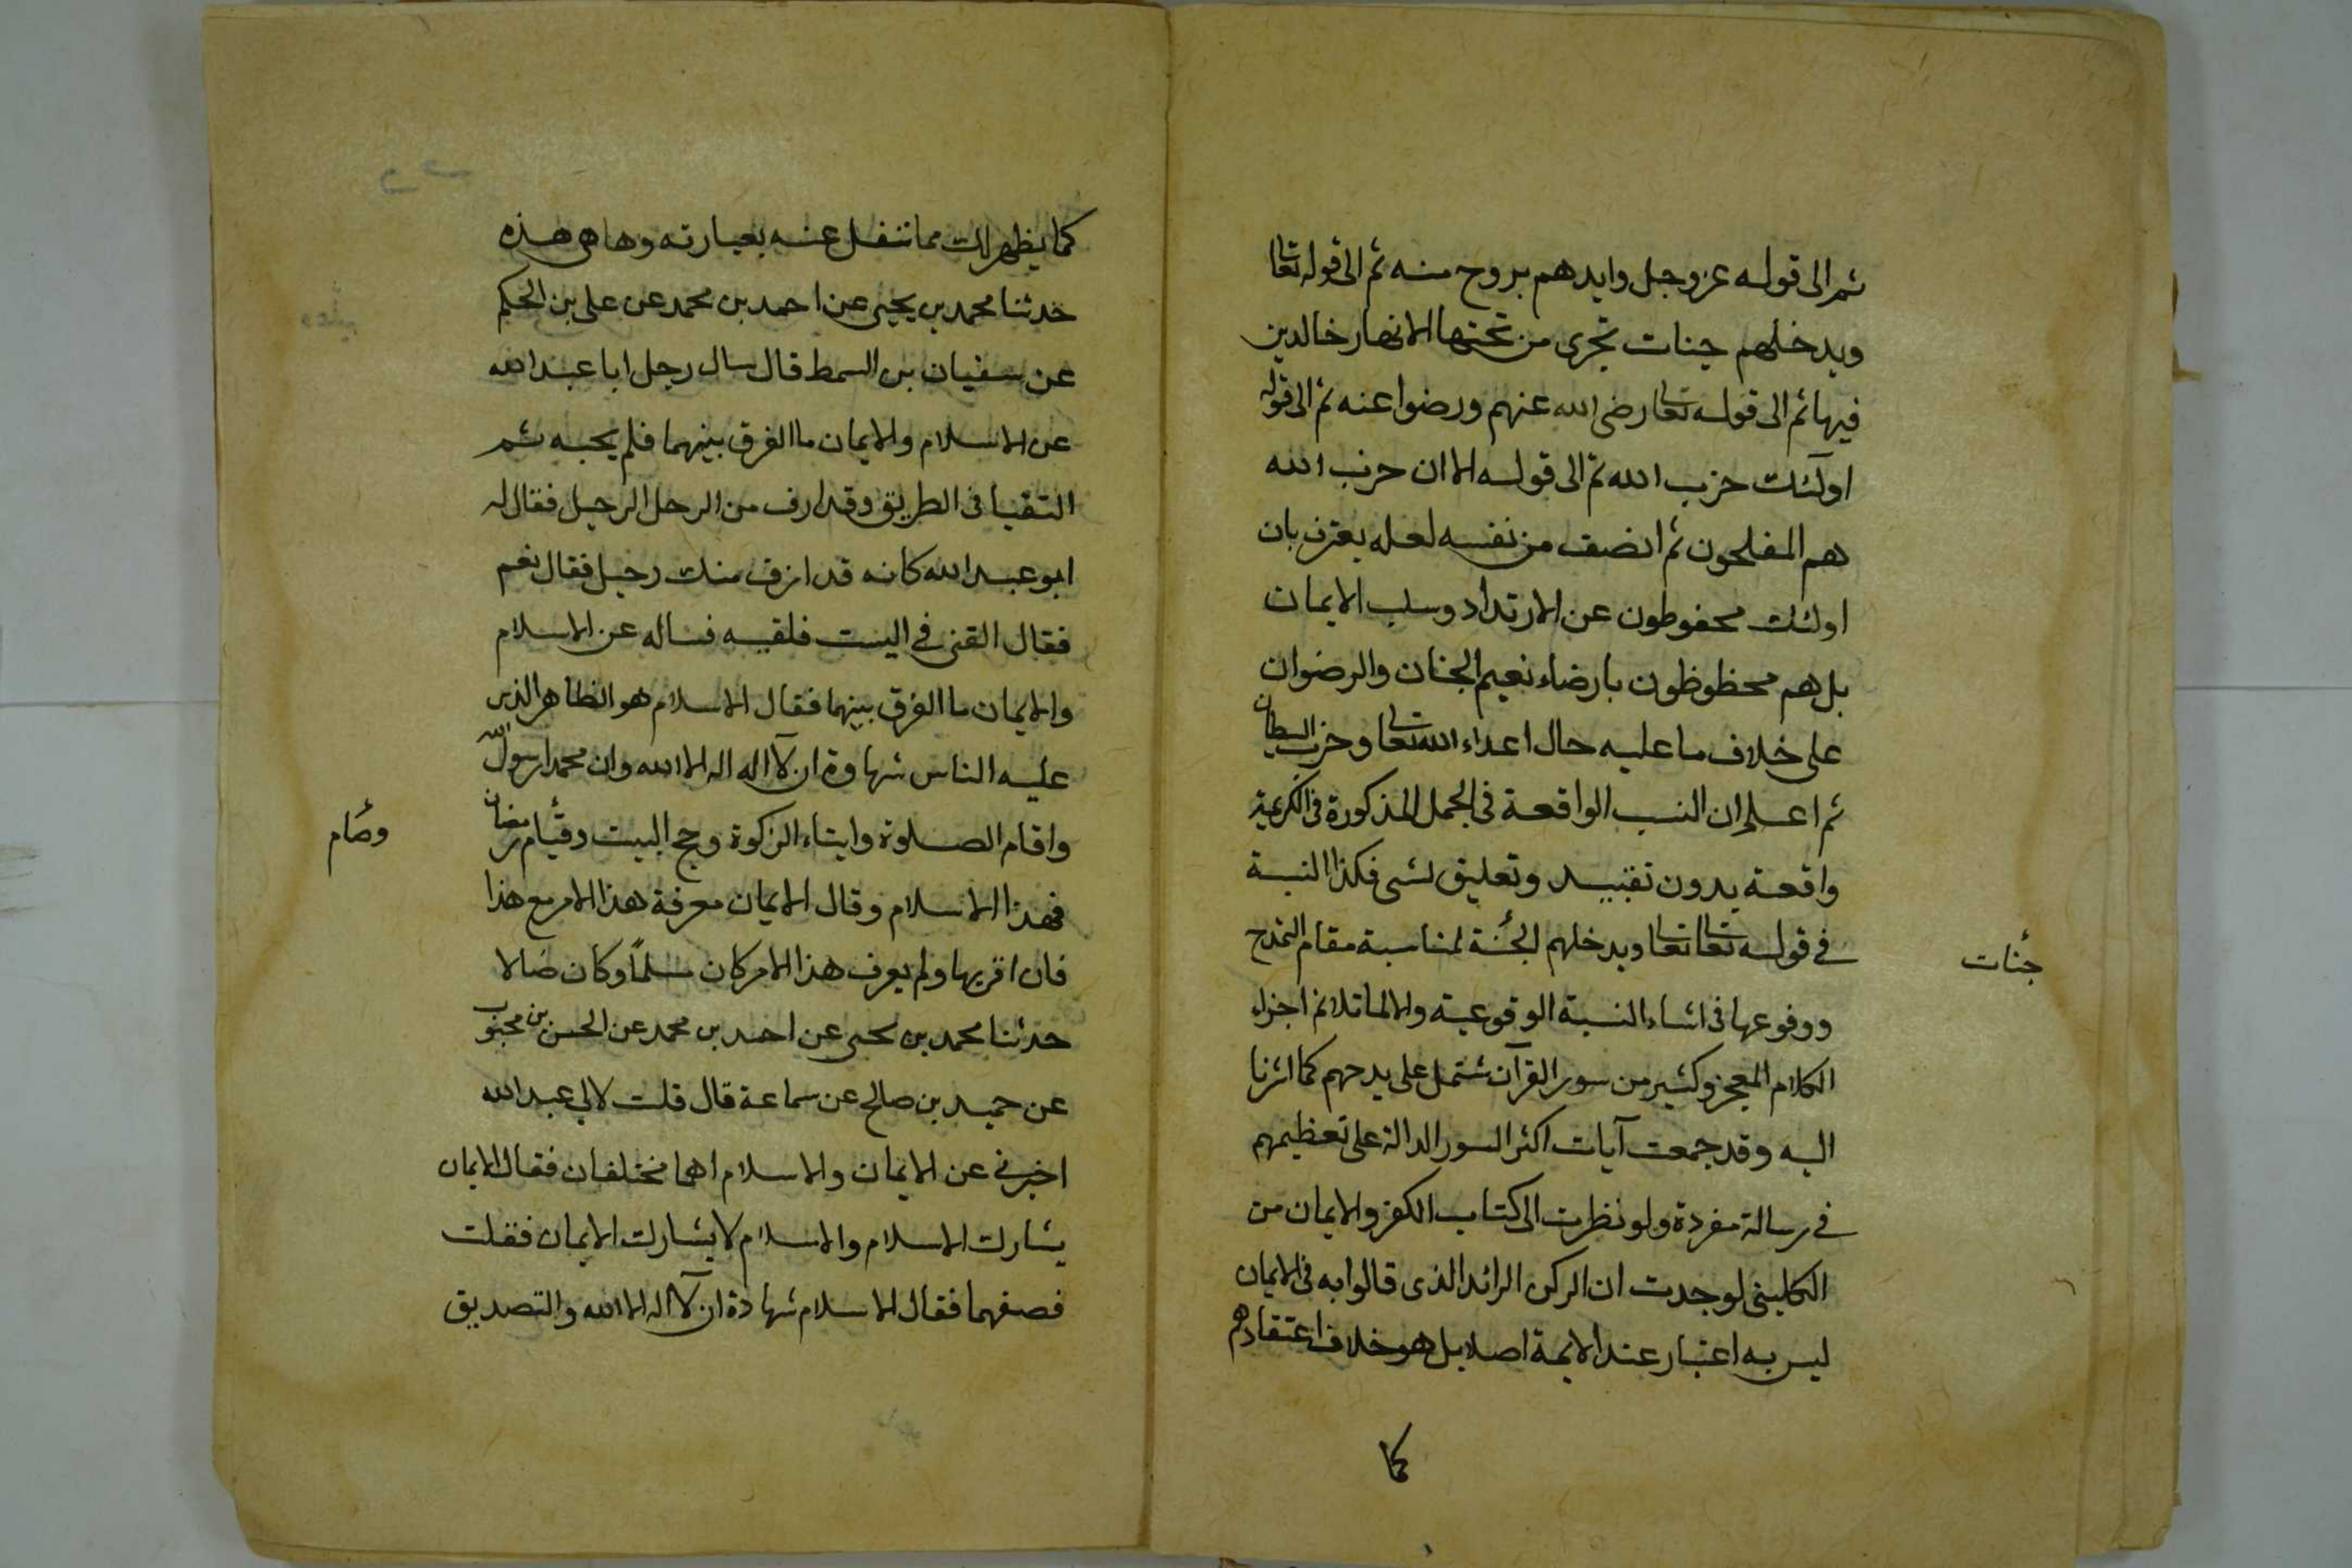 ثم الى قوله عز وجل وايدهم بروح منه ثم الى قوله تعالى
ويدخلهم جنات تجرى من تحتها الانهار خالدين
فيها ثم الى قوله تعالى رضى الله عنهم ورضوا عنه ثم الى قوله
اولئك حزب الله ثم الى قوله الا ان حزب الله
هم المفلحون ثم انصف من نفسه لعله يعترف بان
اولئك محفوظون عن الارتداد وسلب الايمان
بل هم محظوظون بارضاء نعيم الجنان والرضوان
على خلاف ما عليه حال اعداء الله تعالى وحزب الشيطان
ثم اعلم ان النسب الواقعة فى الجمل المذكورة فى الكريمة
واقعة بدون تقييد وتعليق لشى فكذا النسبة
في قوله تعالى تعالى ويدخلهم الجنة لمناسبة مقام التمدح
جنات
ووقوعها فى اثناء النسبة الوقوعية والا لما تلائم اجزاء
الكلام المعجز وكثير من سور القرآن تشتمل على مدحهم كما اشرنا
اليه وقد جمعت آيات اكثر السور الدالة على تعظيمهم
في رسالة مفردة ولو نظرت الى كتاب الكفر والايمان من
الكلينى لوجدت ان الركن الزائد الذى قالوا به فى الايمان
ليس به اعتبار عند الايمة اصلا بل هو خلاف اعتقادهم
كما
كما يظهر لك مما ننقل عنه بعبارته وها هى هذه
حدثنا محمد بن يحيى عن احمد بن محمد عن على بن الحكم
عن سفيان بن السمط قال سال رجل ابا عبد الله
عن الاسلام والايمان ما الفرق بينهما فلم يجبه ثم
التقيا فى الطريق وقد ازف من الرجل الرحيل فقال له
ابو عبد الله كانه قد ازف منك رحيل فقال نعم
فقال القنى في البيت فلقيه فساله عن الاسلام
والايمان ما الفرق بينهما فقال الاسلام هو الظاهر الذى
عليه الناس شهادة ان لا اله اله الا الله وان محمدا رسول الله
واقام الصلوة وايتاء الزكوة وحج البيت وقيام رمضان
وصام
فهذا الاسلام وقال الايمان معرفة هذا الامر مع هذا
فان اقر بها ولم يعرف هذا الامر كان مسلماً وكان ضالا
حدثنا محمد بن يحيى عن احمد بن محمد عن الحسن بن محبوب
عن حميد بن صالح عن سماعة قال قلت لابي عبد الله
اخبرني عن الايمان والاسلام اهما مختلفان فقال الايمان
يشارك الاسلام والاسلام لا يشارك الايمان فقلت
فصفهما فقال الاسلام شهادة ان لا اله الا الله والتصديق